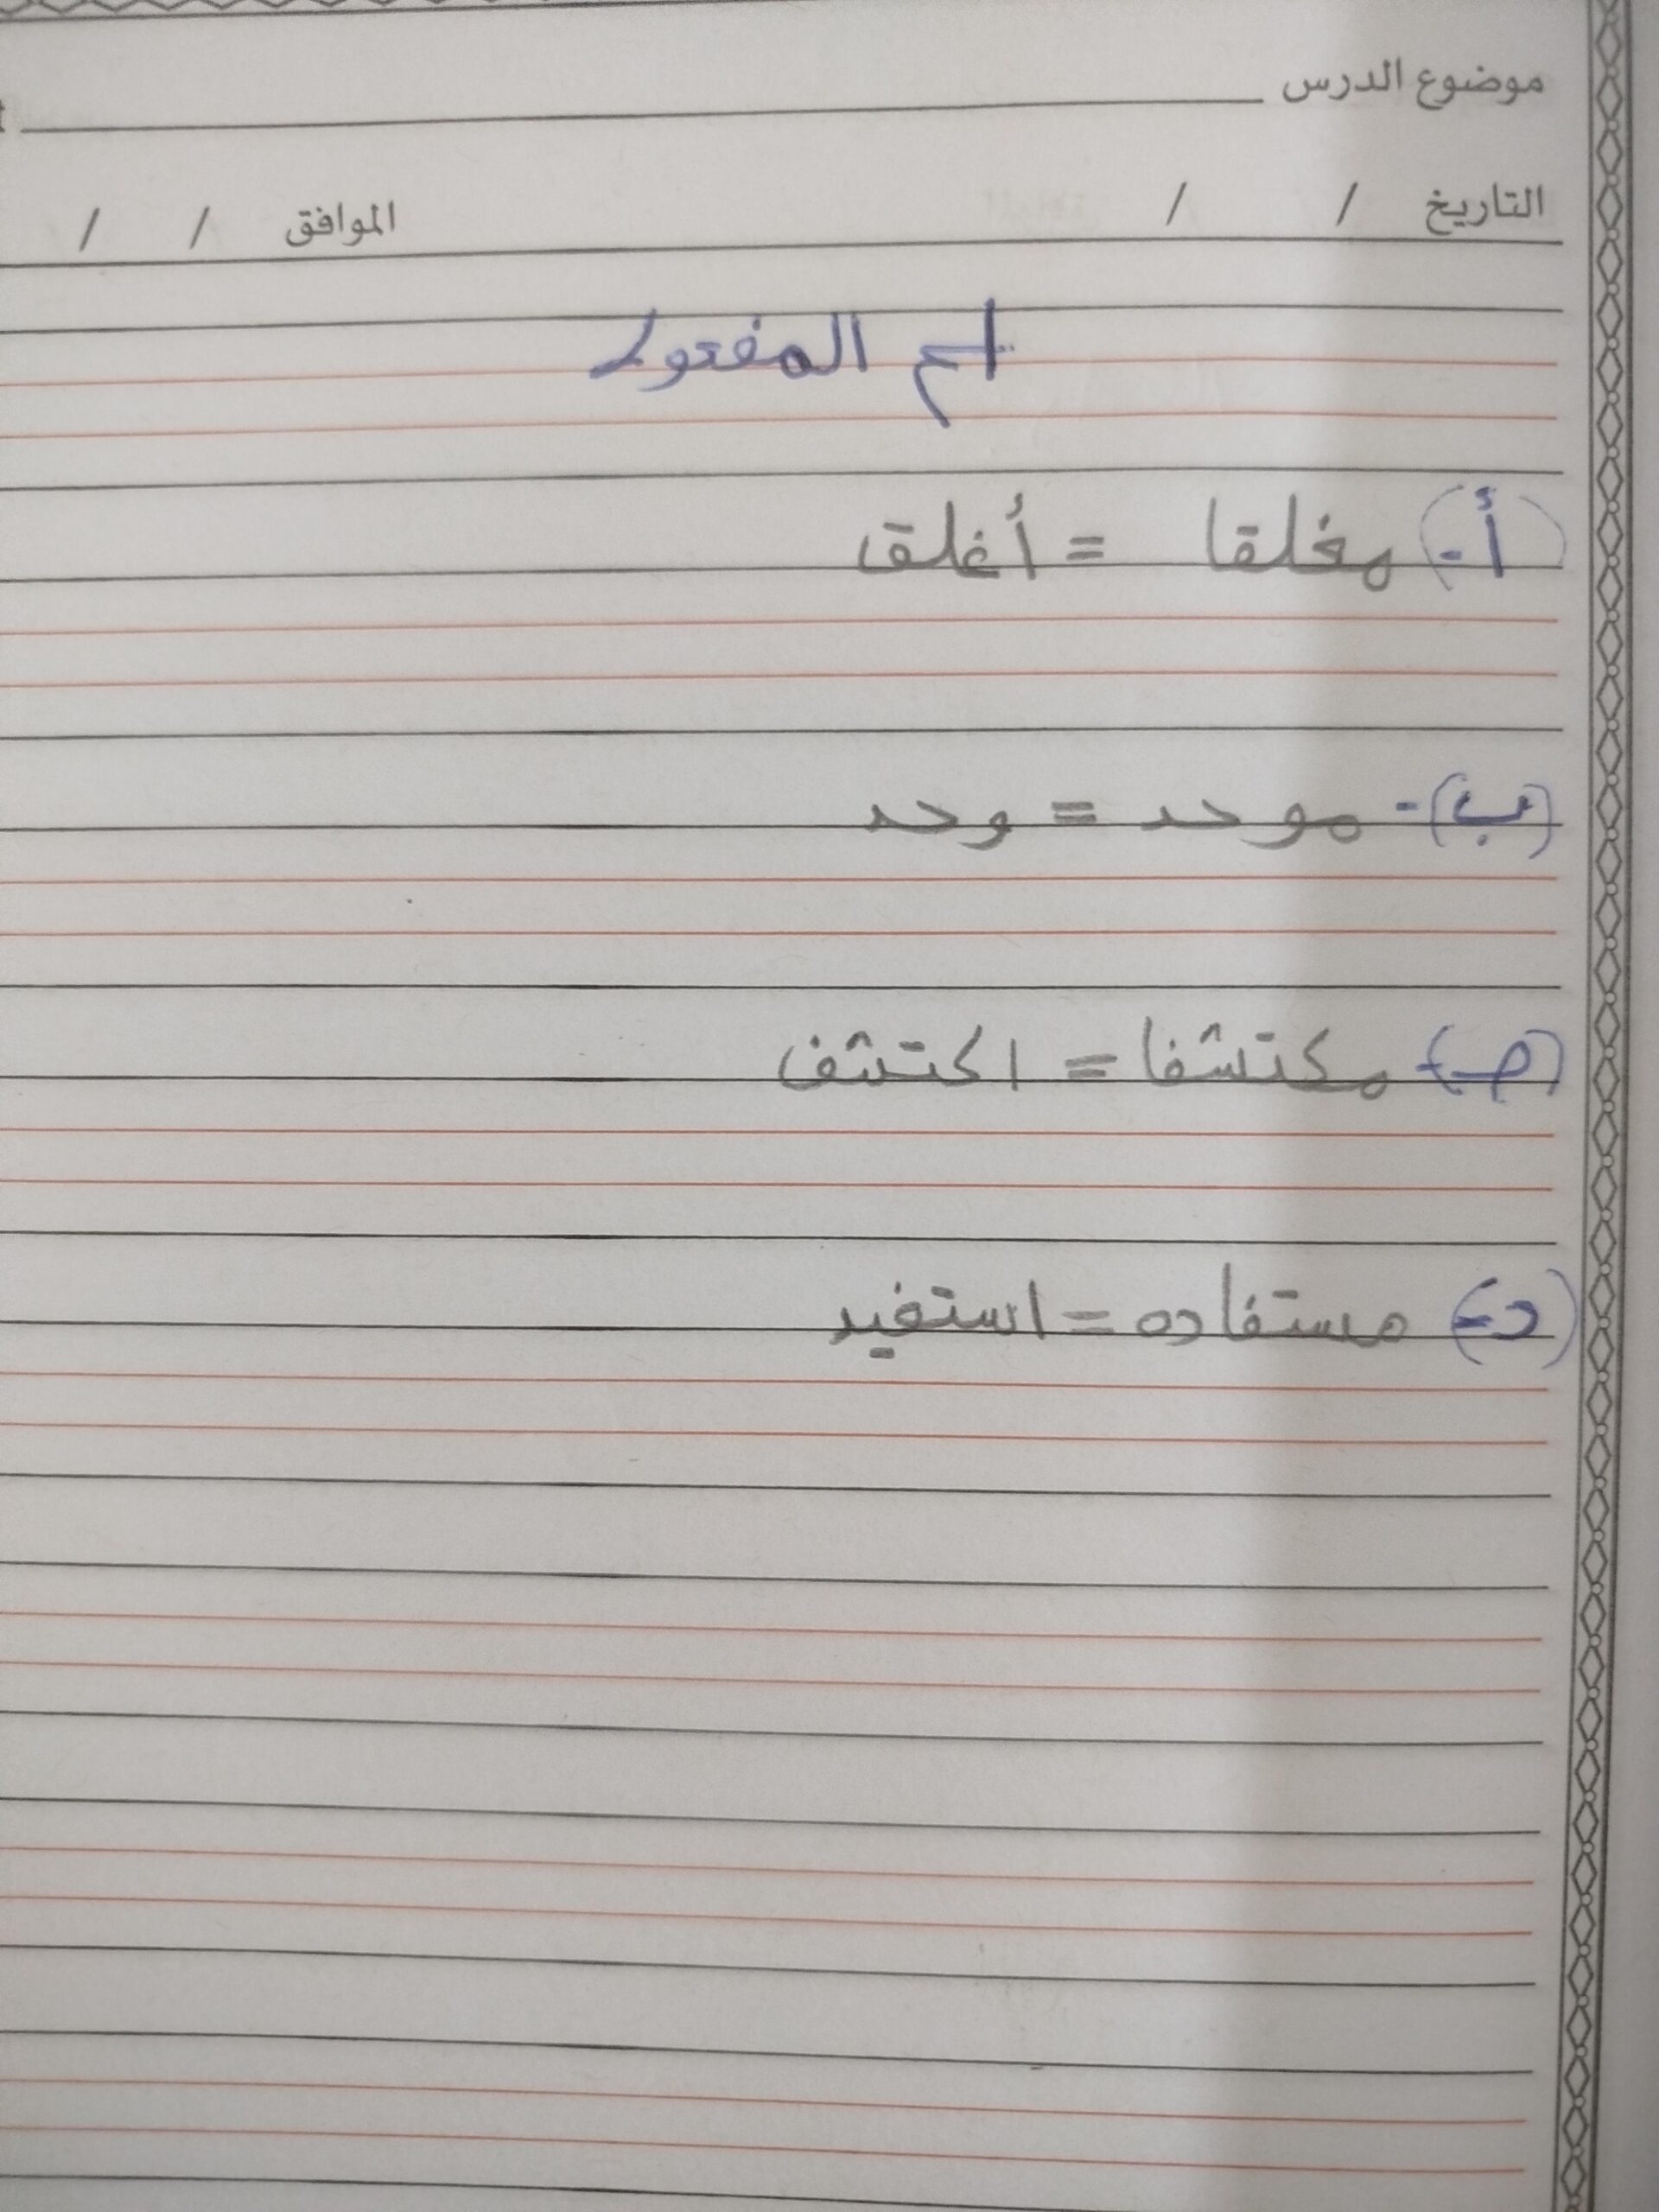 موضوع الدرس
التاريخ / / الموافق / /
اسم المفعول
أ- مغلقا = أغلق
(ب)- موحد = وحد
(جـ)- مكتشفا = اكتشف
(د- مستفاده = استفيد